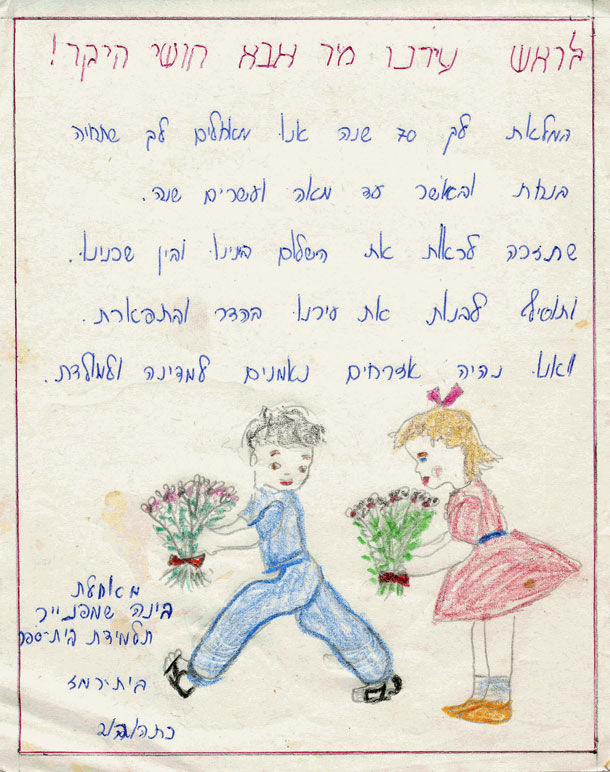 לראש עירנו מר אבא חושי היקר!
במלאת לך 70 שנה אנו מאחלים לך שתחיה
בנחת ובאשר עד מאה ועשרים שנה.
שתזכה לראות את השלום בינינו ובין שכנינו.
ותוסיף לבנות את עירנו בהדר ובתפארת.
ואנו נהיה אזרחים נאמנים למדינה ולמולדת.
מאחלת
בינה
תלמידת בית-ספר
כתה